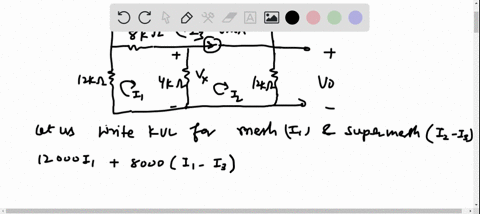 8kΩ I3
+ +
12kΩ I1 4kΩ Vx I2 12kΩ Vo
- -
Let us write KVL for mesh (I1) & supermesh (I2-I3)
12000I1 + 8000 (I1 - I3)